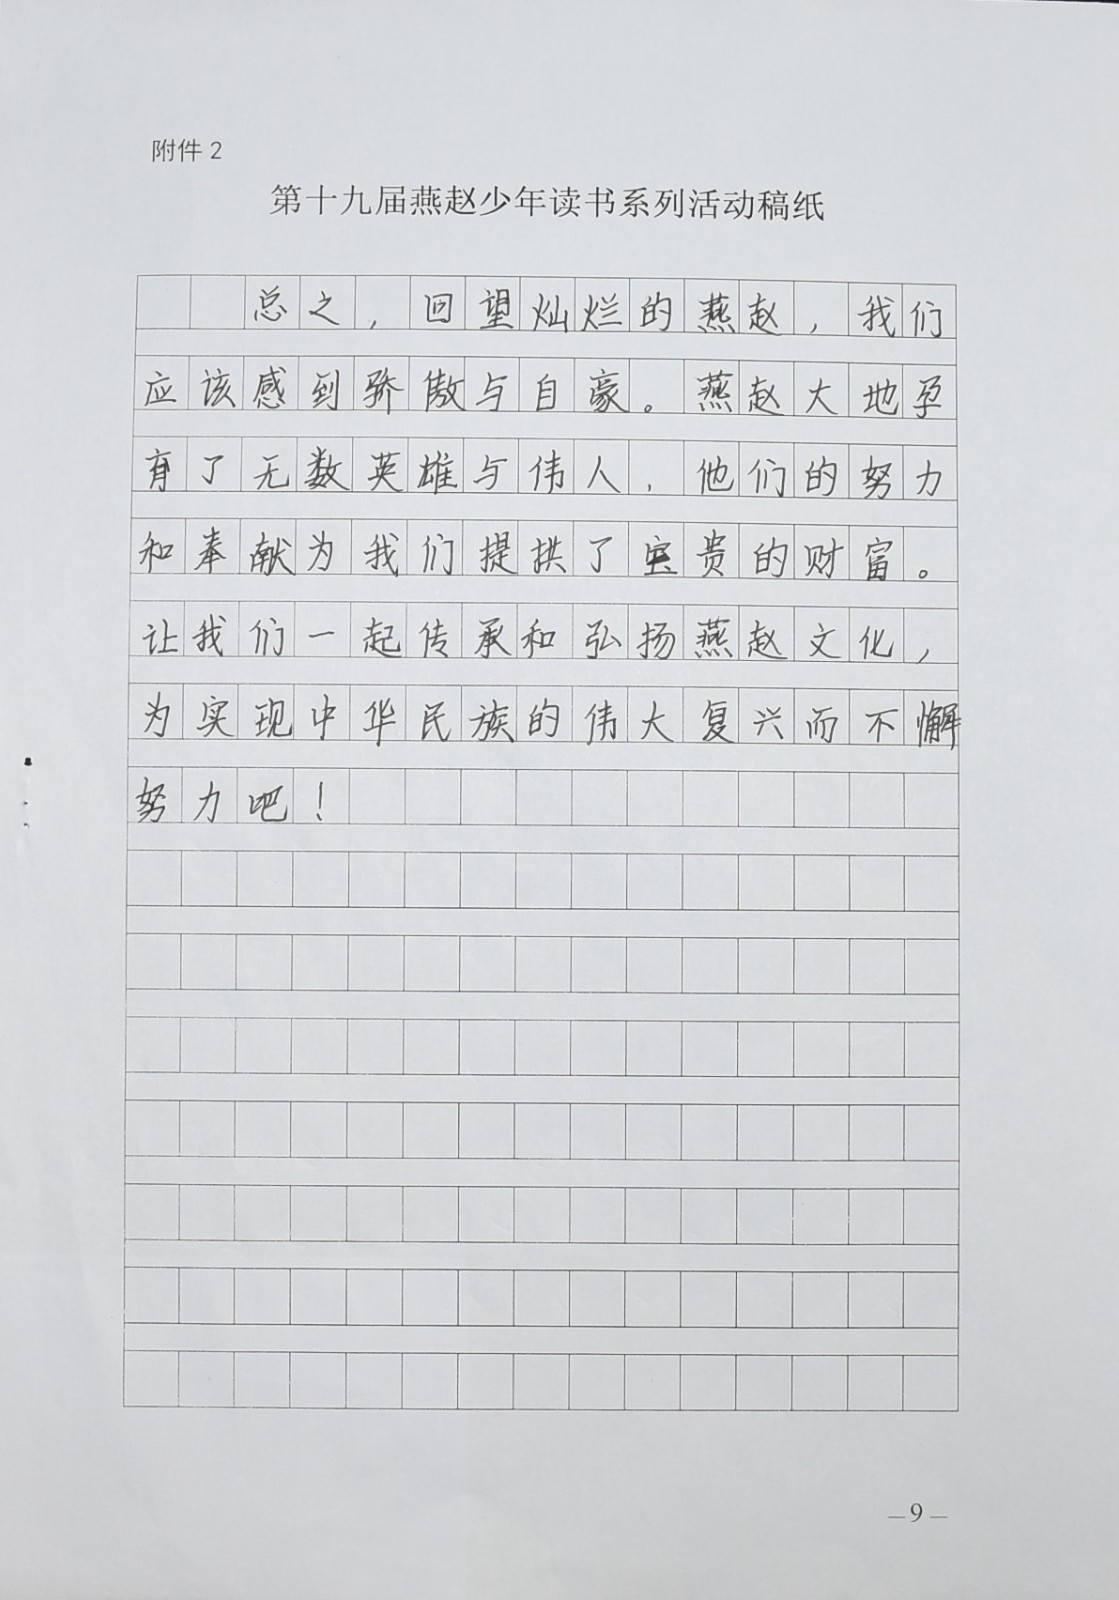 附件2
第十九届燕赵少年读书系列活动稿纸
总之，回望灿烂的燕赵，我们
应该感到骄傲与自豪。燕赵大地孕
育了无数英雄与伟人，他们的努力
和奉献为我们提拱了宝贵的财富。
让我们一起传承和弘扬燕赵文化，
为实现中华民族的伟大复兴而不懈
努力吧！
—9—